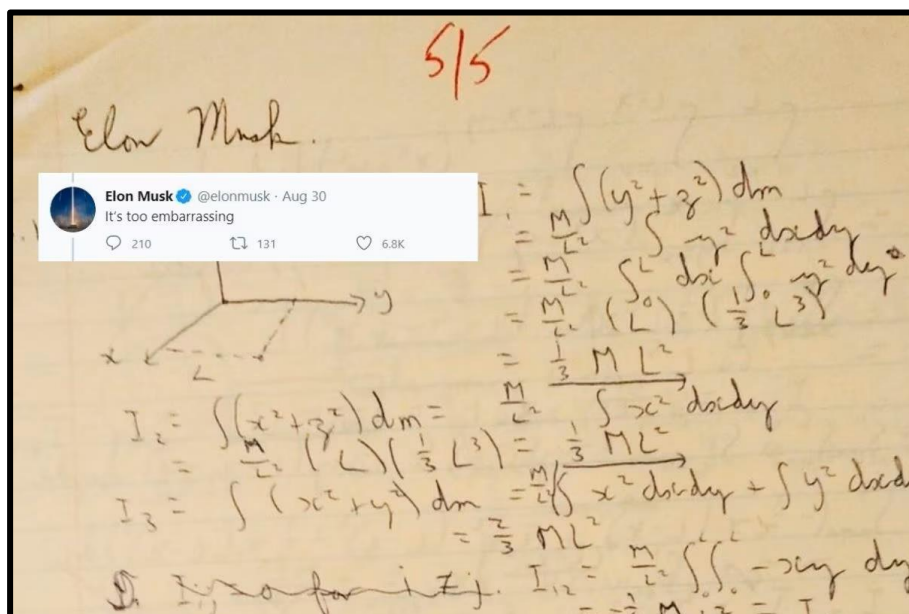 5/5
Elon Musk.
Elon Musk @elonmusk · Aug 30
It's too embarrassing
210 131 6.8K
I₁ = ∫(y² + z²) dm
= M/L² ∫ y² dxdy
= M/L² ∫₀ᴸ dx ∫₀ᴸ y² dy
= M/L² (L) (1/3 L³)
= 1/3 ML²
y
x
L
I₂ = ∫(x² + z²) dm = M/L² ∫ x² dxdy
= M/L² (L)(1/3 L³) = 1/3 ML²
I₃ = ∫(x² + y²) dm = M/L² ∫ x² dxdy + ∫ y² dxd
= 2/3 ML²
I₁₂ = M/L² ∫₀ᴸ∫₀ᴸ -xy dy